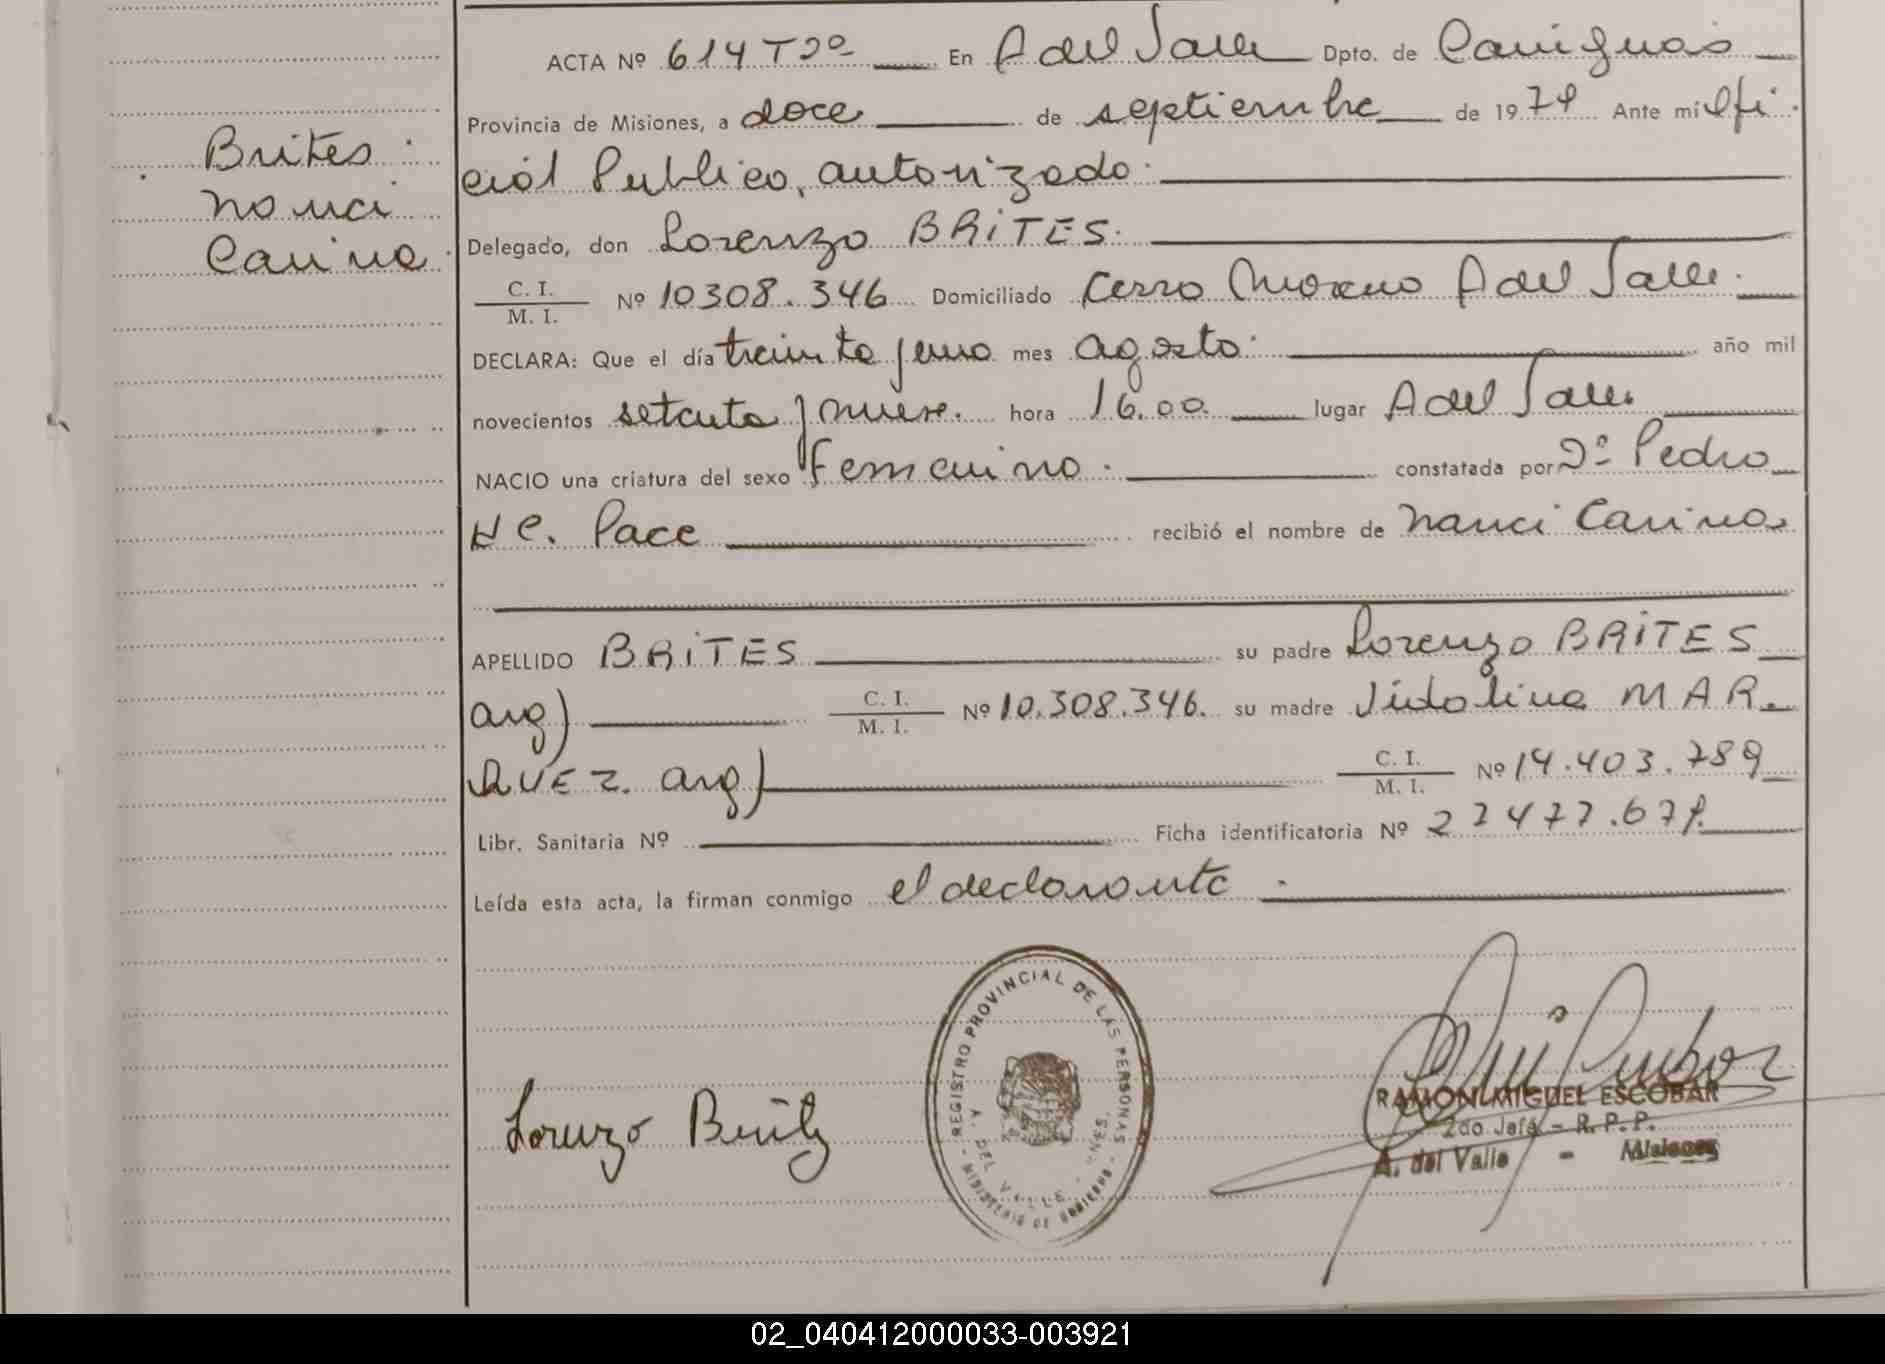 ACTA Nº 614 Tº 2º En A del Valle Dpto. de Cainguas
Provincia de Misiones, a doce de septiembre de 1979 Ante mi Ofi
cial Publico, autorizado.
Brites
Nanci
Carina
Delegado, don Lorenzo BRiTES.
C. I.
M. I.
Nº 10308.346 Domiciliado Cerro Moreno A del Valle.
DECLARA: Que el día treinta y uno mes agosto. año mil
novecientos setenta y nueve. hora 16.00 lugar A del Valle.
NACIO una criatura del sexo femenino. constatada por Dº Pedro
H C. Pace recibió el nombre de Nanci Carina
APELLIDO BRiTES su padre Lorenzo BRITES
arg) C. I.
M. I.
Nº 10.308.346. su madre MAR
QUEZ. arg) C. I.
M. I.
Nº 14.403.789
Libr. Sanitaria Nº Ficha identificatoria Nº 27477.679.
Leída esta acta, la firman conmigo el declarante.
REGISTRO PROVINCIAL DE LAS PERSONAS
MINISTERIO DE GOBIERNO
A. DEL VALLE - MNES.
Lorenzo
RAMON MIGUEL ESCOBAR
2do Jefe - R. P. P.
A. del Valle - Misiones
02_040412000033-003921